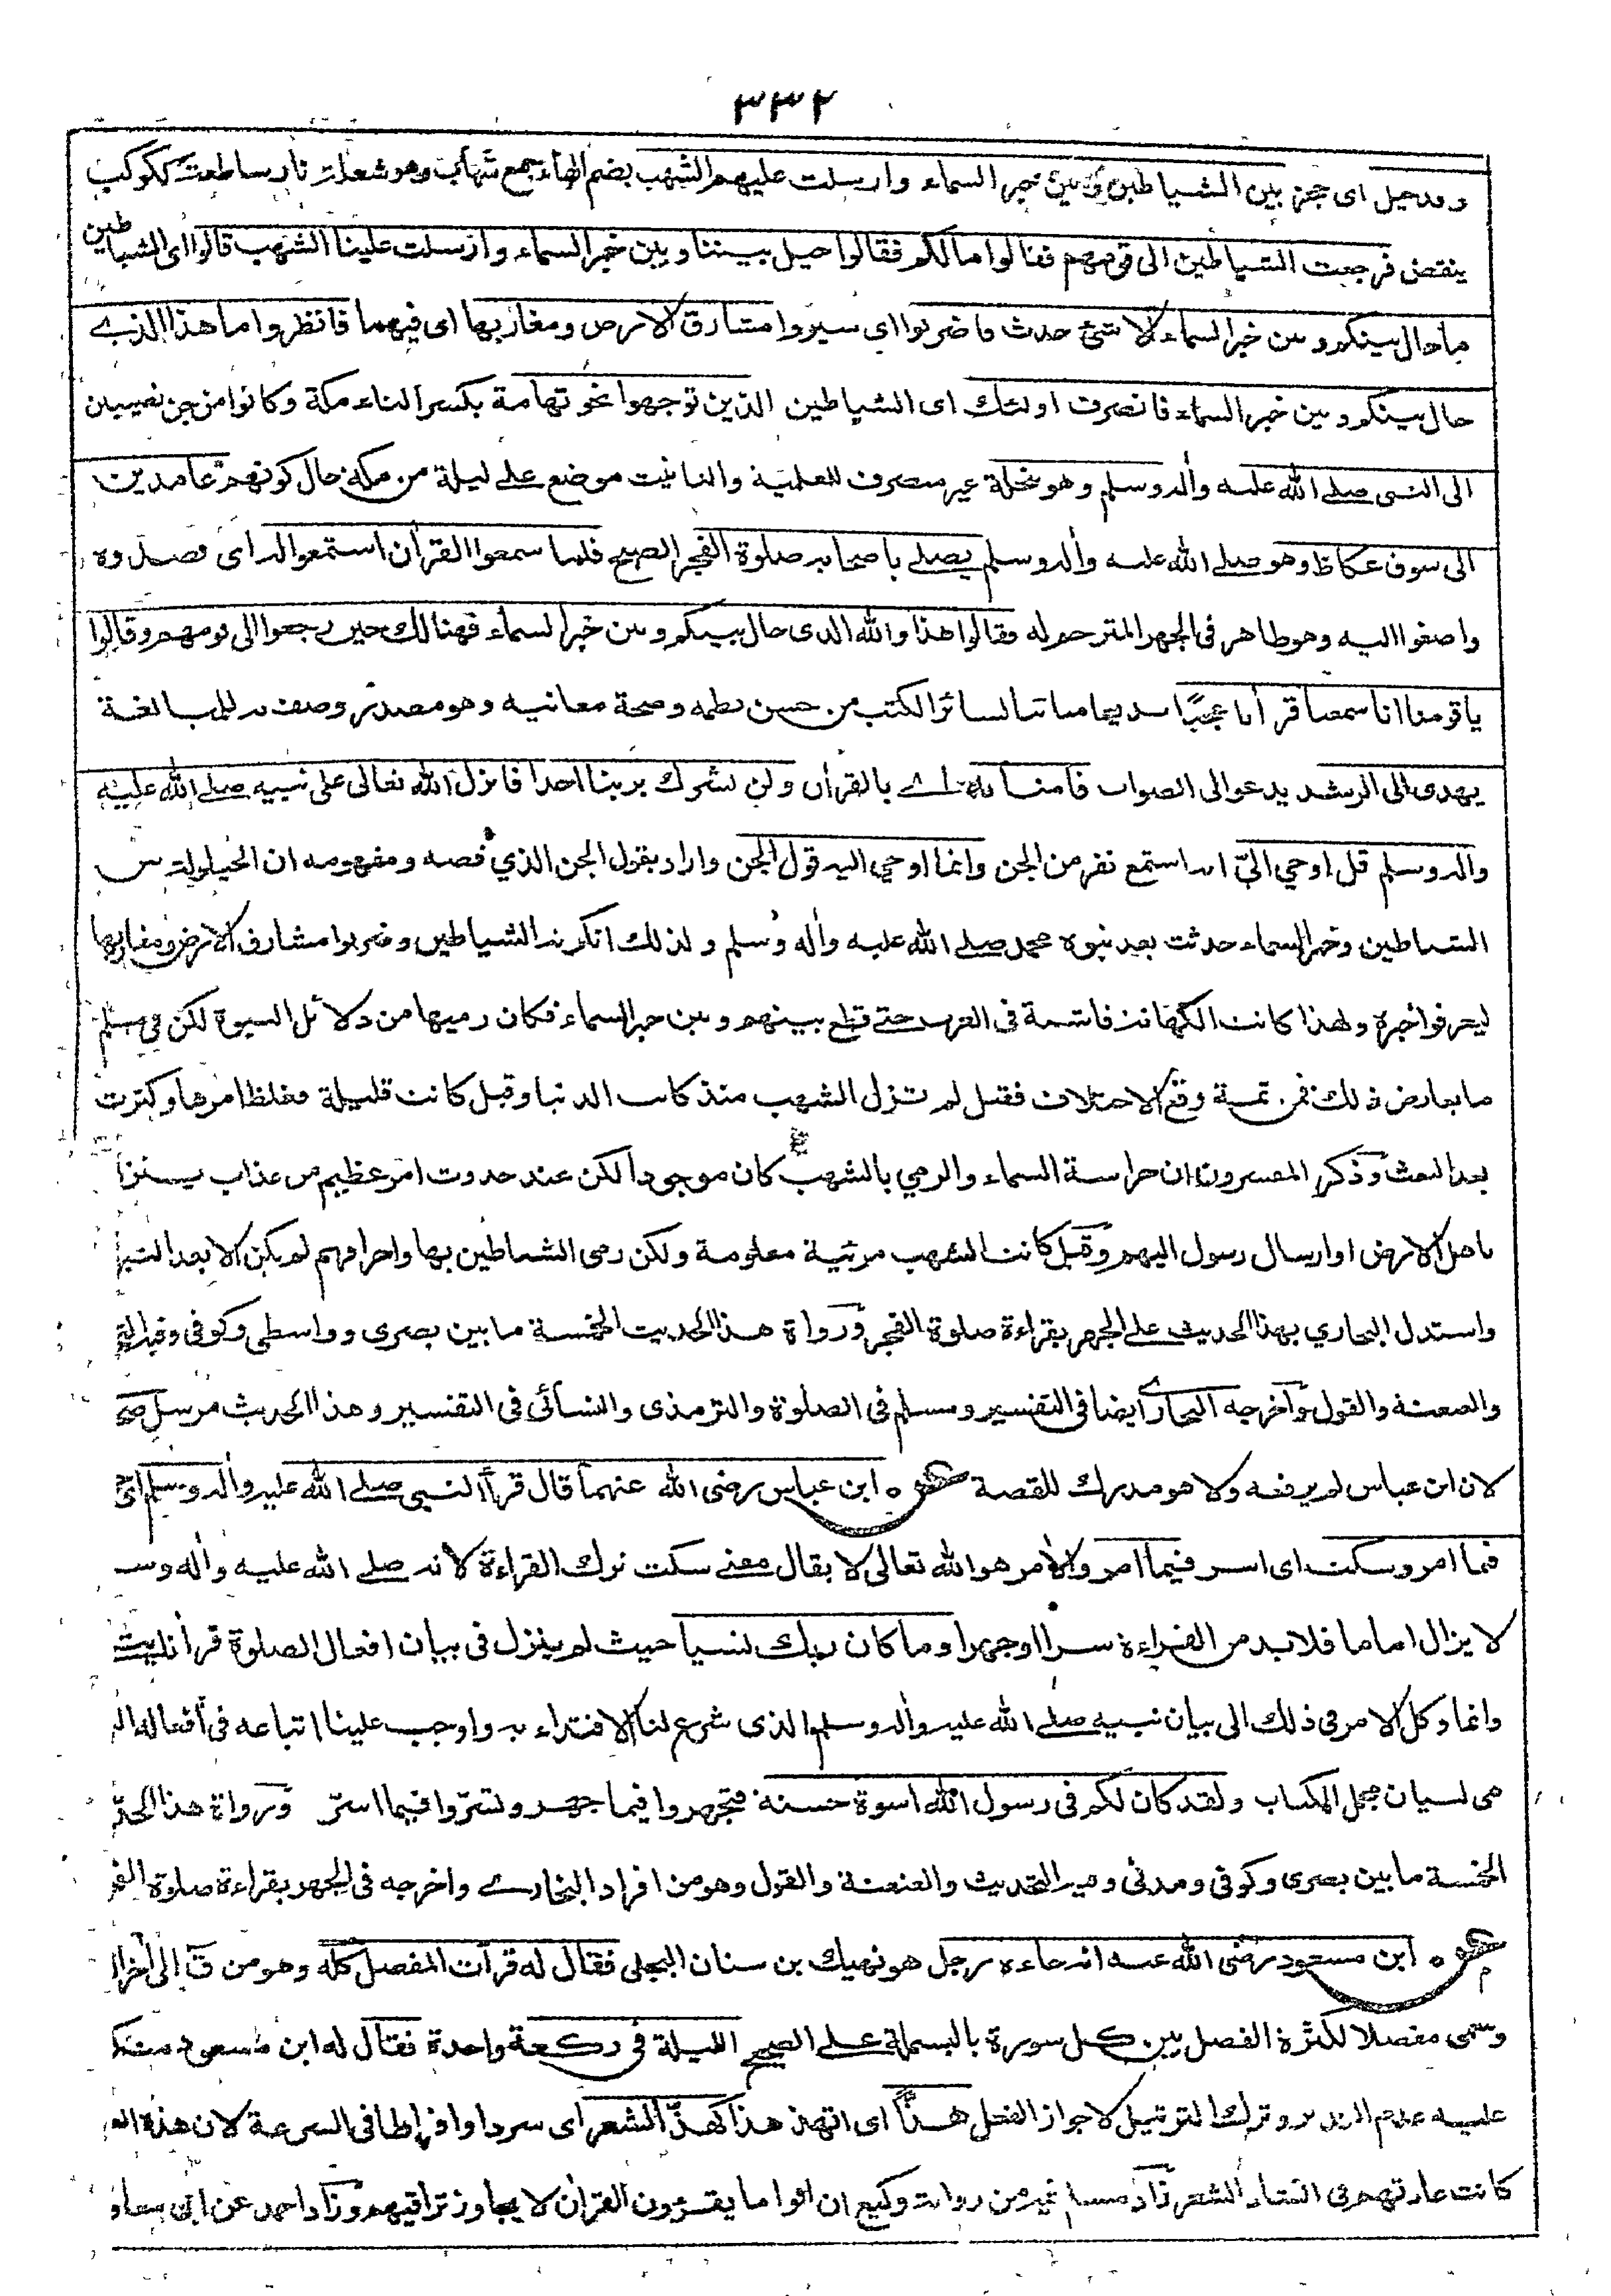 ٣٣٢
وقد حيل اى حجز بين الشياطين وبين خبر السماء وارسلت عليهم الشهب بضم الهاء جمع شهاب وهو شعلة نار ساطعة ككوكب
ينقض فرجعت الشياطين الى قومهم فقالوا مالكم فقالوا حيل بيننا وبين خبر السماء وارسلت علينا الشهب قالوا اى الشياطين
ما حال بينكم وبين خبر السماء الا شئ حدث فاضربوا اى سيروا مشارق الارض ومغاربها اى فيهما فانظروا ما هذا الذى
حال بينكم وبين خبر السماء فانصرف اولئك اى الشياطين الذين توجهوا نحو تهامة بكسر التاء مكة وكانوا من جن نصيبين
الى النبى صلى الله عليه وآله وسلم وهو بنخلة غير منصرف للعلمية والتانيث موضع على ليلة من مكة حال كونهم عامدين
الى سوق عكاظ وهو صلى الله عليه وآله وسلم يصلى باصحابه صلوة الفجر الصبح فلما سمعوا القرآن استمعوا له اى قصدوه
واصغوا اليه وهو ظاهر فى الجهر المترجم له فقالوا هذا والله الذى حال بينكم وبين خبر السماء فهنالك حين رجعوا الى قومهم وقالوا
يا قومنا انا سمعنا قرآنا عجبًا بديعا مباينا لسائر الكتب من حسن نظمه وصحة معانيه وهو مصدر وصف به للمبالغة
يهدى الى الرشد يدعو الى الصواب فآمنا به اى بالقرآن ولن نشرك بربنا احدا فانزل الله تعالى على نبيه صلى الله عليه
وآله وسلم قل اوحي اليّ انه استمع نفر من الجن وانما اوحي اليه قول الجن واراد بقول الجن الذي قصه ومفهومه ان الحيلولة بين
الشياطين وخبر السماء حدثت بعد نبوة محمد صلى الله عليه وآله وسلم ولذلك انكرته الشياطين وضربوا مشارق الارض ومغاربها
ليعرفوا خبره ولهذا كانت الكهانة فاشية فى العرب حتى قطع بينهم وبين خبر السماء فكان رميها من دلائل النبوة لكن فى مسلم
ما يعارض ذلك فمن ثمة وقع الاختلاف فقيل لم تزل الشهب منذ كانت الدنيا وقيل كانت قليلة فغلظ امرها وكثرت
بعد البعث وذكر المفسرون ان حراسة السماء والرمي بالشهب كان موجودا لكن عند حدوث امر عظيم من عذاب ينزل
باهل الارض او ارسال رسول اليهم وقيل كانت الشهب مرئية معلومة ولكن رمى الشياطين بها واحراقهم لم يكن الا بعد
واستدل البخاري بهذا الحديث على الجهر بقراءة صلوة الفجر ورواة هذا الحديث الخمسة ما بين بصرى وواسطى وكوفى وفيه
والعنعنة والقول واخرجه البخارى ايضا فى التفسير ومسلم فى الصلوة والترمذى والنسائى فى التفسير وهذا الحديث مرسل
لان ابن عباس لم يرفعه ولا هو مدرك للقصة عن ابن عباس رضى الله عنهما قال قرأ النبى صلى الله عليه وآله وسلم
فيما امر وسكت اى اسر فيما امر والآمر هو الله تعالى لا يقال معنى سكت ترك القراءة لانه صلى الله عليه وآله وسـ
لا يزال اماما فلابد من القراءة سرا او جهرا وما كان ربك نسيا حيث لم ينزل فى بيان افعال الصلوة قرآنا
وانما وكل الامر فى ذلك الى بيان نبيه صلى الله عليه وآله وسلم الذى شرع لنا الاقتداء به واوجب علينا اتباعه فى افعاله
هى لبيان مجمل الكتاب ولقد كان لكم فى رسول الله اسوة حسنة فتجهروا فيما جهر وتسرّوا فيما اسرّ ورواة هذا
الخمسة ما بين بصرى وكوفى ومدنى وفيه التحديث والعنعنة والقول وهو من افراد البخارى واخرجه فى الجهر بقراءة صلوة
عن ابن مسعود رضى الله عنه انه جاءه رجل هو نهيك بن سنان البجلى فقال له قرأت المفصل كله وهو من ق الى آخر
وسمى مفصلا لكثرة الفصل بين كل سورة بالبسملة على الصحيح الليلة فى ركعة واحدة فقال له ابن مسعود
عليه عدم التدبر وترك الترتيل لا جواز الفعل هذًّا اى اتهذ هذا كهذّ الشعر اى سردا وافراطا فى السرعة لان هذه
كانت عادتهم فى انشاد الشعر زاد مسلم فيه من رواية وكيع ان اقواما يقرءون القرآن لا يجاوز تراقيهم وزاد احمد عن ابى